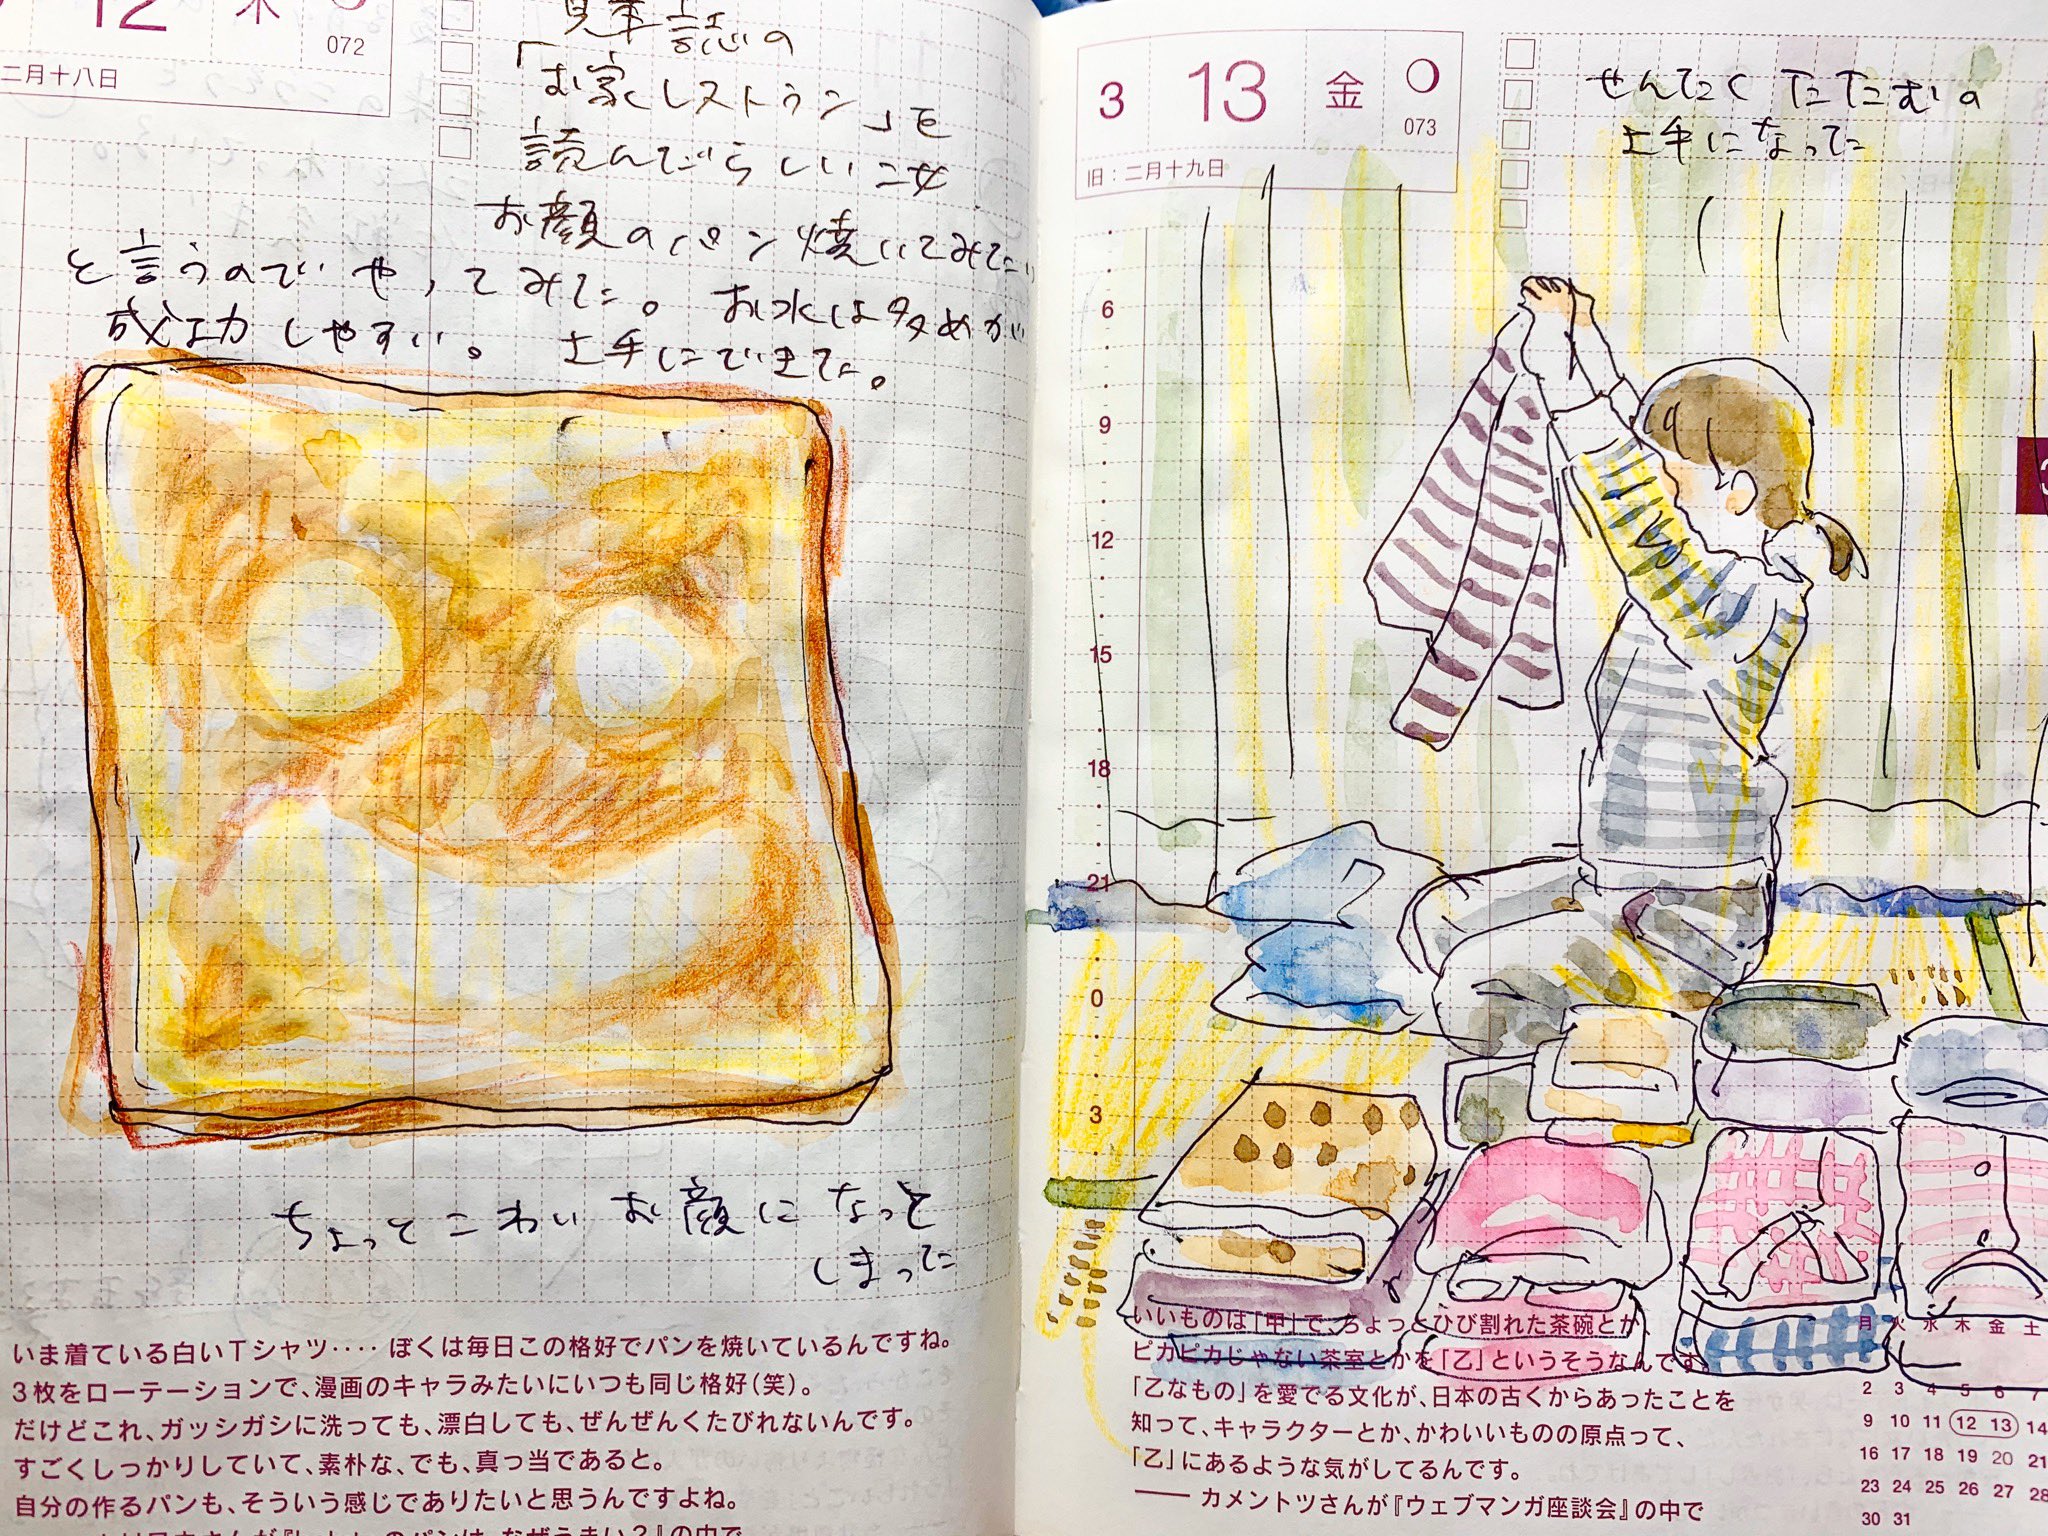 12 木
072
二月十八日
見本誌の
「お家レストラン」を
読んだらしい二女
お顔のパン焼いてみたい
と言うのでやってみた。お水は多めがい
成功しやすい。上手にできた。
ちょっとこわいお顔になっと
しまった
いま着ている白いTシャツ‥‥ぼくは毎日この格好でパンを焼いているんですね。
3枚をローテーションで、漫画のキャラみたいにいつも同じ格好(笑)。
だけどこれ、ガッシガシに洗っても、漂白しても、ぜんぜんくたびれないんです。
すごくしっかりしていて、素朴な、でも、真っ当であると。
自分の作るパンも、そういう感じでありたいと思うんですよね。
のパンは、なぜうまい?』の中で
3 13 金
073
旧:二月十九日
せんたくたたむの
上手になった
6
9
12
15
18
21
0
3
いいものは「甲」で、ちょっとひび割れた茶碗とか、
ピカピカじゃない茶室とかを「乙」というそうなんです。
「乙なもの」を愛でる文化が、日本の古くからあったことを
知って、キャラクターとか、かわいいものの原点って、
「乙」にあるような気がしてるんです。
―― カメントツさんが『ウェブマンガ座談会』の中で
月 火 水 木 金 土
2 3 4 5 6 7
9 10 11 12 13 14
16 17 18 19 20 21
23 24 25 26 27 28
30 31